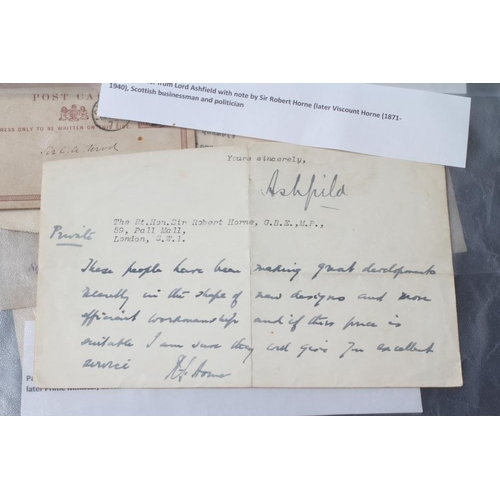 from Lord Ashfield with note by Sir Robert Horne (later Viscount Horne (1871-
1940), Scottish businessman and politician
POST CA
NESS ONLY TO BE WRITTEN ON
Yours sincerely,
Ashfield
The Rt.Hon.Sir Robert Horne, G.B.E.,M.P.,
89, Pall Mall,
London, S.W.1.
Private
These people have been making great developments
recently in the shape of new designs and more
efficient workmanship and if their price is
suitable I am sure they will give you excellent
service
R S Horne
later Prime Minister,